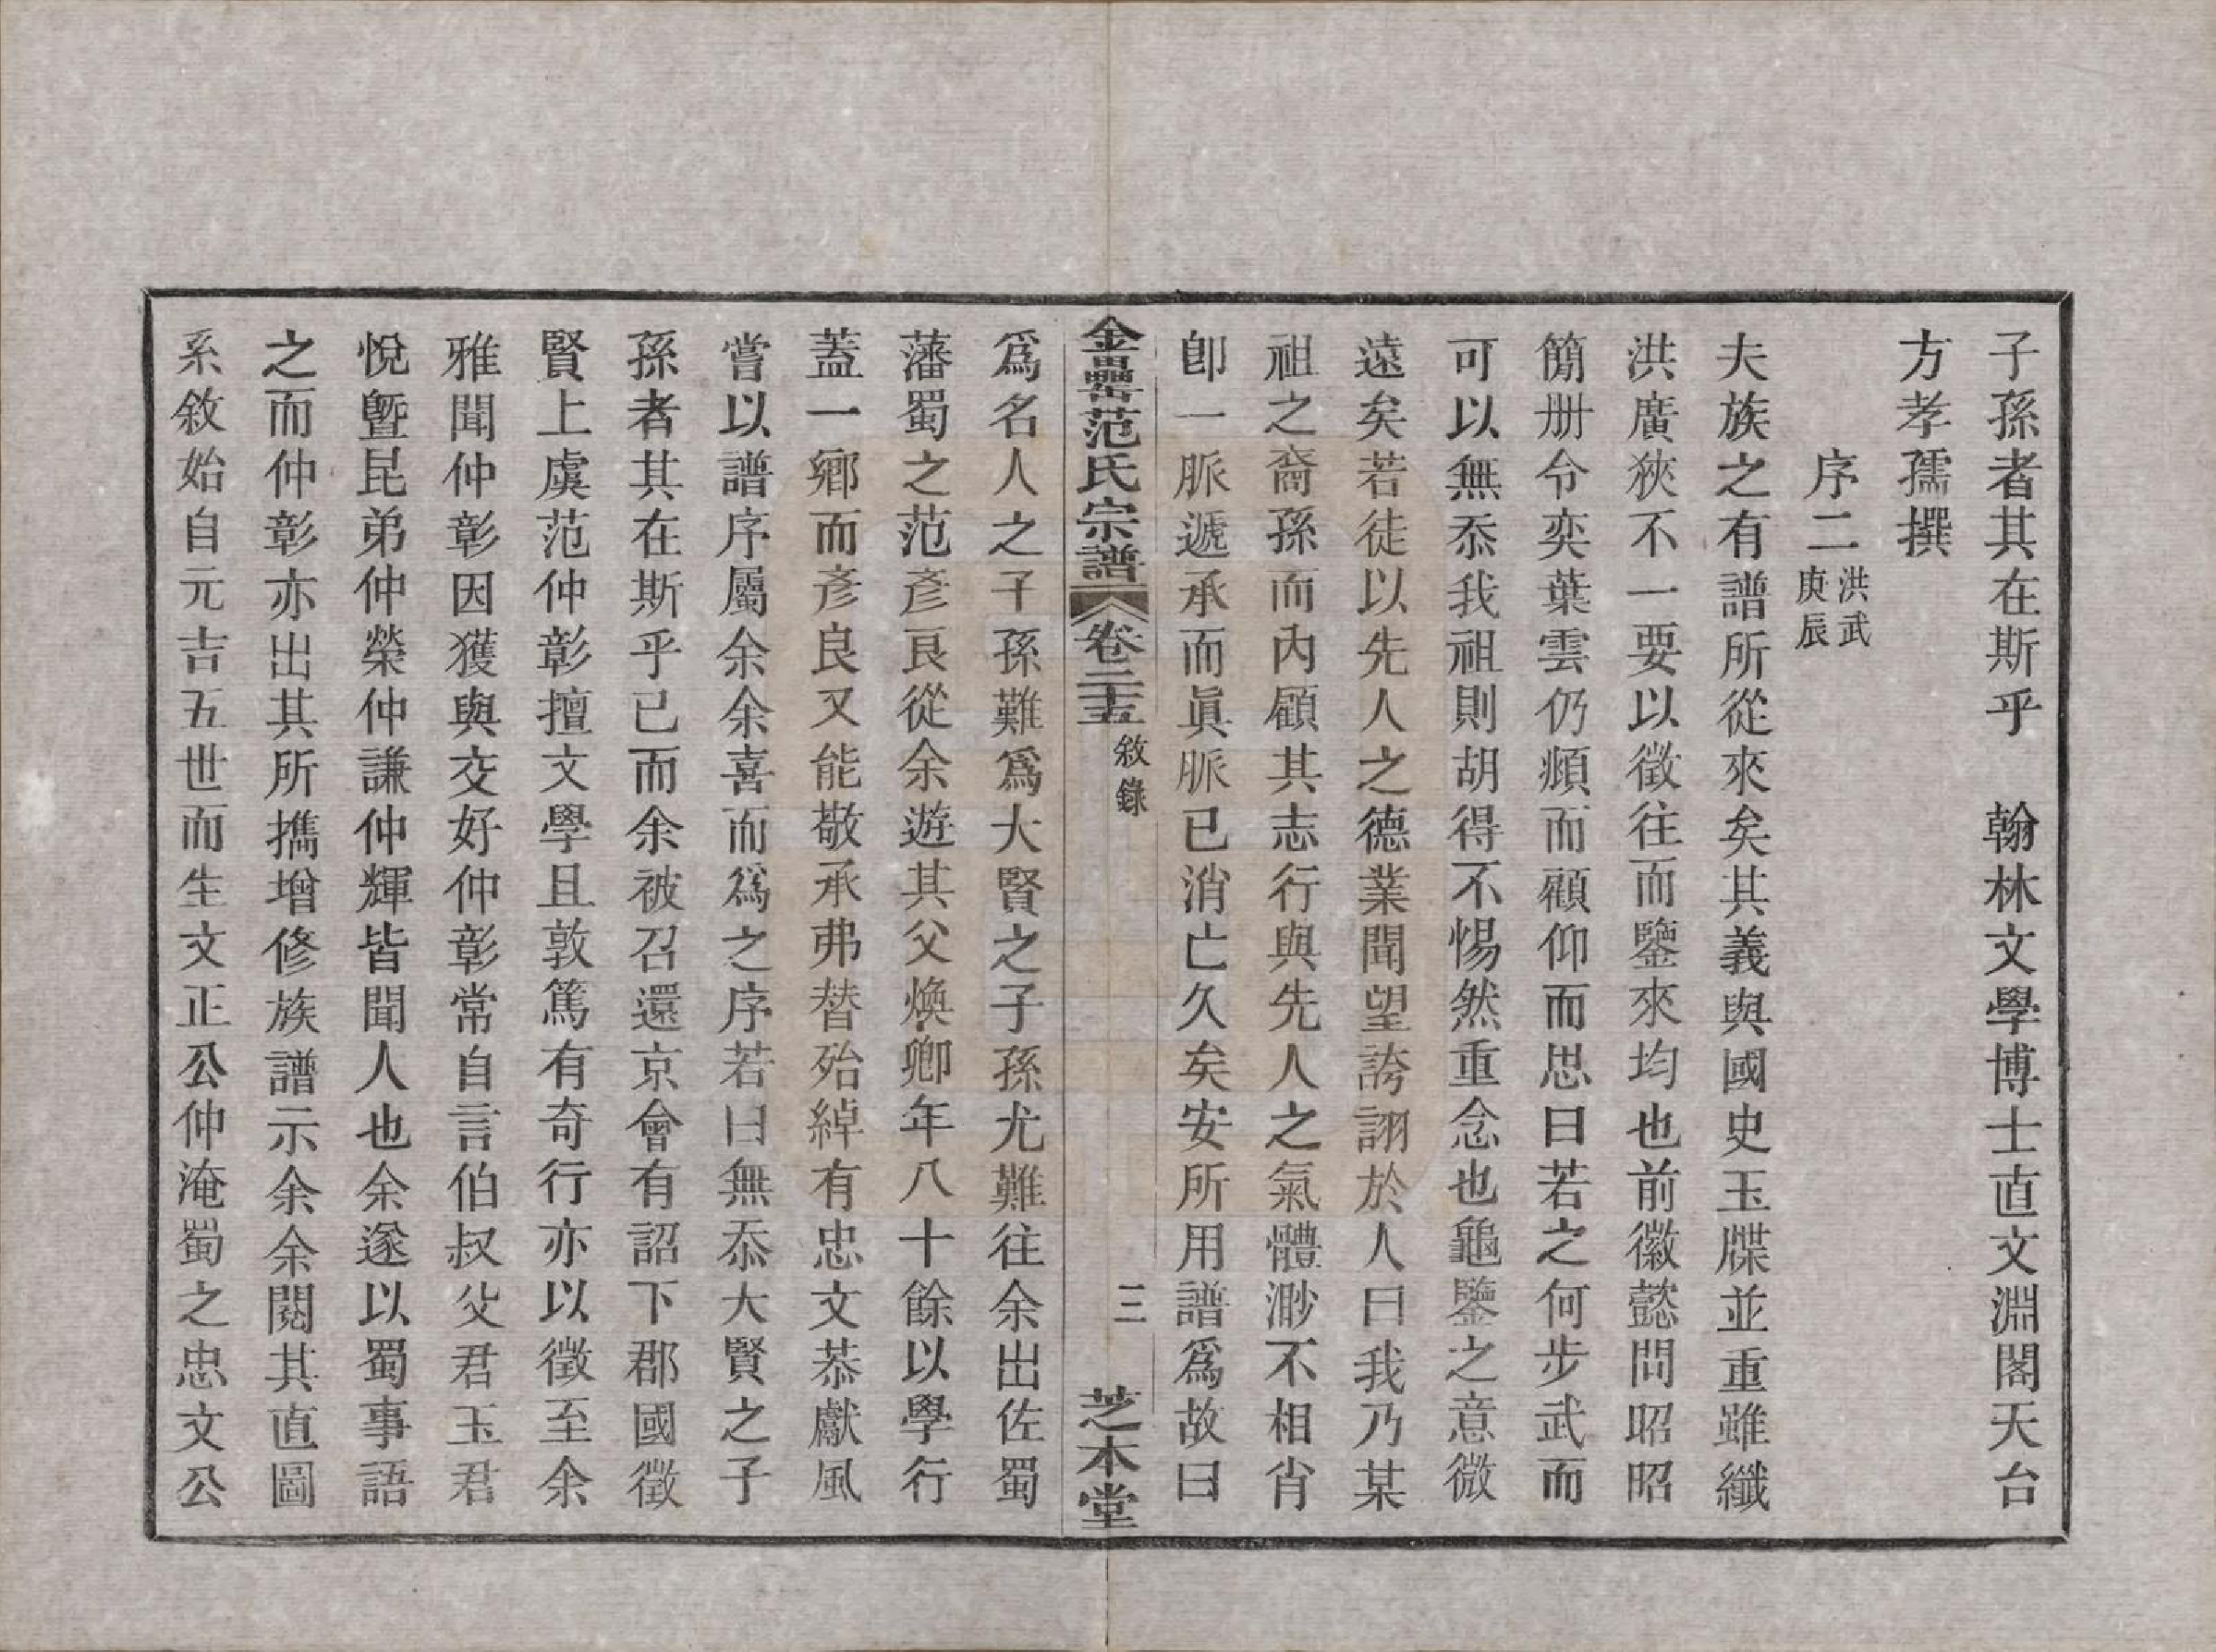 子孫者其在斯乎　翰林文學博士直文淵閣天台
方孝孺撰
序二洪武庚辰
夫族之有譜所從來矣其義與國史玉牒並重雖纖
洪廣狹不一要以徵往而鑒來均也前徽懿問昭昭
簡册令奕葉雲仍頫而顧仰而思曰若之何步武而
可以無忝我祖則胡得不惕然重念也龜鑒之意微
遠矣若徒以先人之德業聞望誇詡於人曰我乃某
祖之裔孫而內顧其志行與先人之氣體渺不相肖
卽一脈遞承而眞脈已消亡久矣安所用譜爲故曰
金罍范氏宗譜　卷二十五　敘錄　三　芝本堂
爲名人之子孫難爲大賢之子孫尤難往余出佐蜀
藩蜀之范彥良從余遊其父煥卿年八十餘以學行
蓋一鄉而彥良又能敬承弗替殆綽有忠文恭獻風
嘗以譜序屬余余喜而爲之序若曰無忝大賢之子
孫者其在斯乎已而余被召還京會有詔下郡國徵
賢上虞范仲彰擅文學且敦篤有奇行亦以徵至余
雅聞仲彰因獲與交好仲彰常自言伯叔父君玉君
悅暨昆弟仲榮仲謙仲輝皆聞人也余遂以蜀事語
之而仲彰亦出其所攜增修族譜示余余閱其直圖
系敘始自元吉五世而生文正公仲淹蜀之忠文公